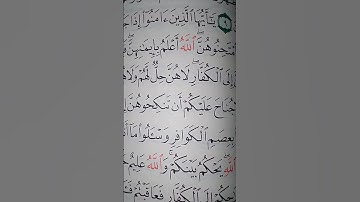 يَٰٓأَيُّهَا ٱلَّذِينَ ءَامَنُوٓا۟ إِذَا جَآ
مْتَحِنُوهُنَّ ۖ ٱللَّهُ أَعْلَمُ بِإِيمَٰنِهِنَّ ۖ
إِلَى ٱلْكُفَّارِ ۖ لَا هُنَّ حِلٌّ لَّهُمْ وَلَا هُ
جُنَاحَ عَلَيْكُمْ أَن تَنكِحُوهُنَّ إِ
بِعِصَمِ ٱلْكَوَافِرِ وَسْـَٔلُوا۟ مَآ أَ
ٱللَّهِ ۖ يَحْكُمُ بَيْنَكُمْ ۚ وَٱللَّهُ عَلِيمٌ حَ
جِكُمْ إِلَى ٱلْكُفَّارِ فَعَاقَبْتُمْ فَـَٔ